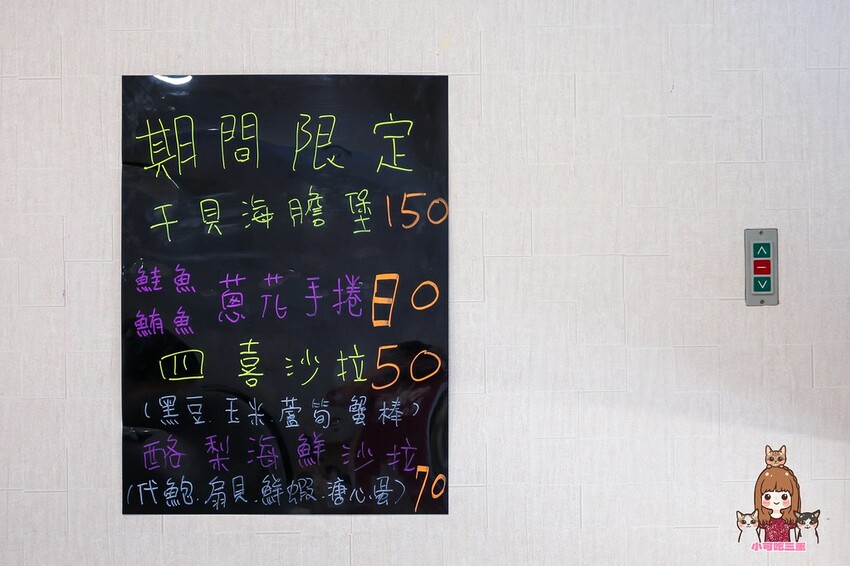 期間限定
干貝海膽堡150
鮭魚
鮪魚
蔥花手捲80
四喜沙拉50
(黑豆.玉米.蘆筍.蟹棒)
酪梨海鮮沙拉
(代鮑.扇貝.鮮蝦.溏心蛋)70
小可吃三重